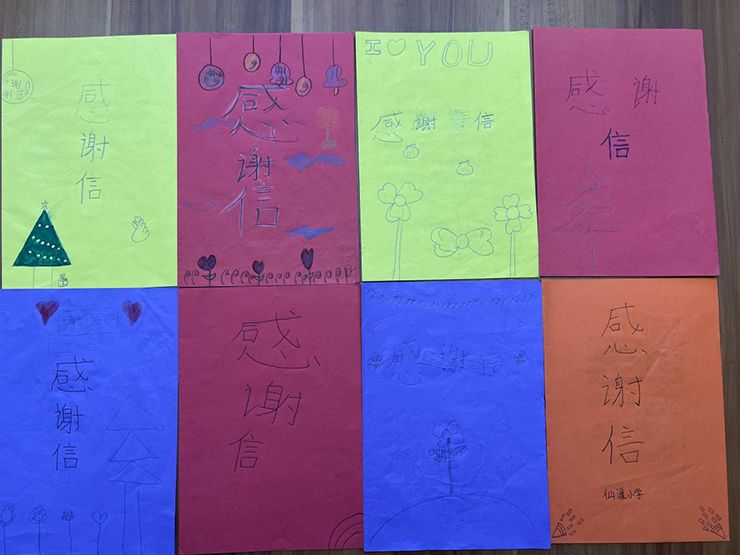 感
谢
信
感
谢
信
I ♡ YOU
感谢信
感 谢
信
感
谢
信
感
谢
信
感谢信
感
谢
信